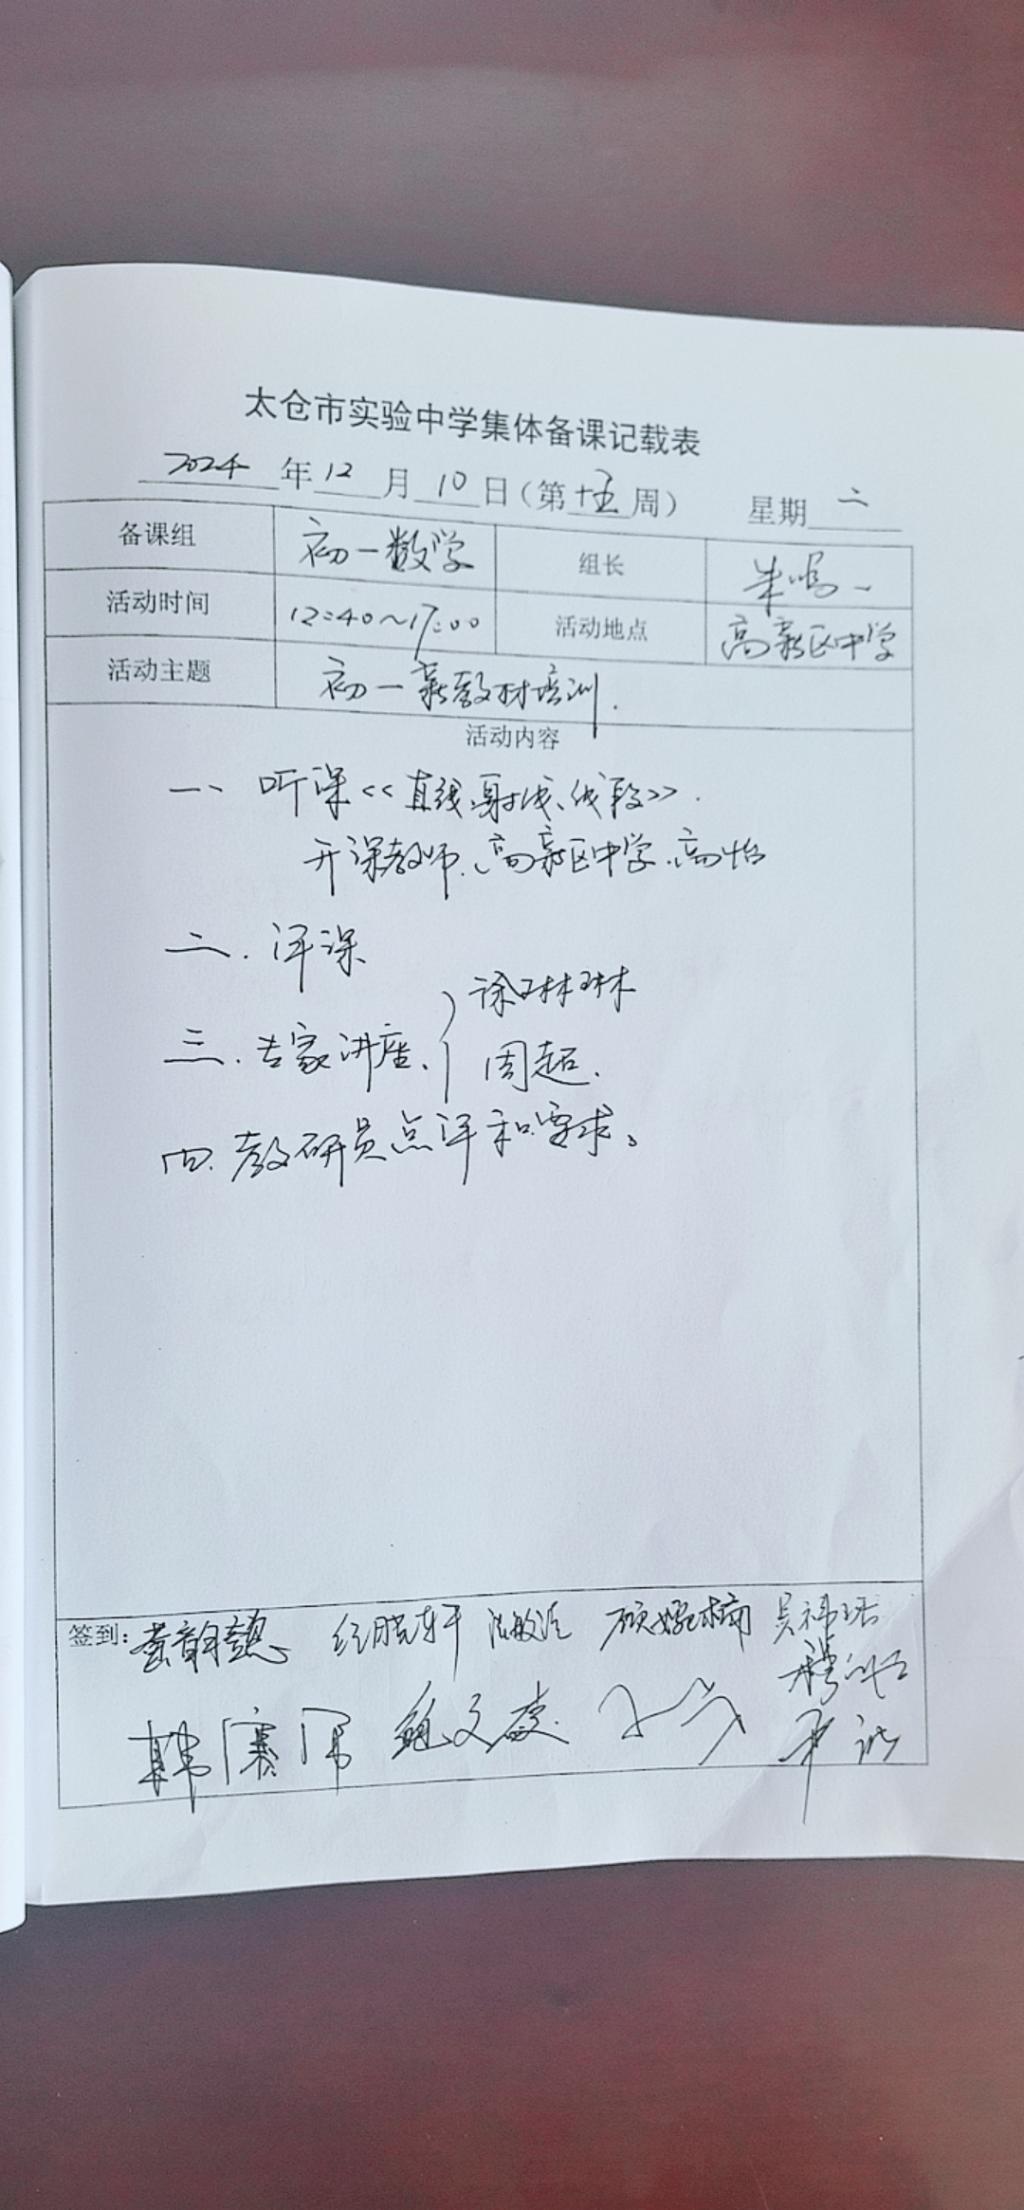 太仓市实验中学集体备课记载表
2024年12月10日(第十五周) 星期二
备课组 初一数学 组长 朱鸣一
活动时间 12:40~17:00 活动地点 高新区中学
活动主题 初一新教材培训.
活动内容
一、听课<<直线、射线、线段>>.
开课教师.高新区中学.高怡
二.评课
三.专家讲座、徐琳琳
周超.
四.教研员点评和要求。
签到:
韩赛军 鲍文庆